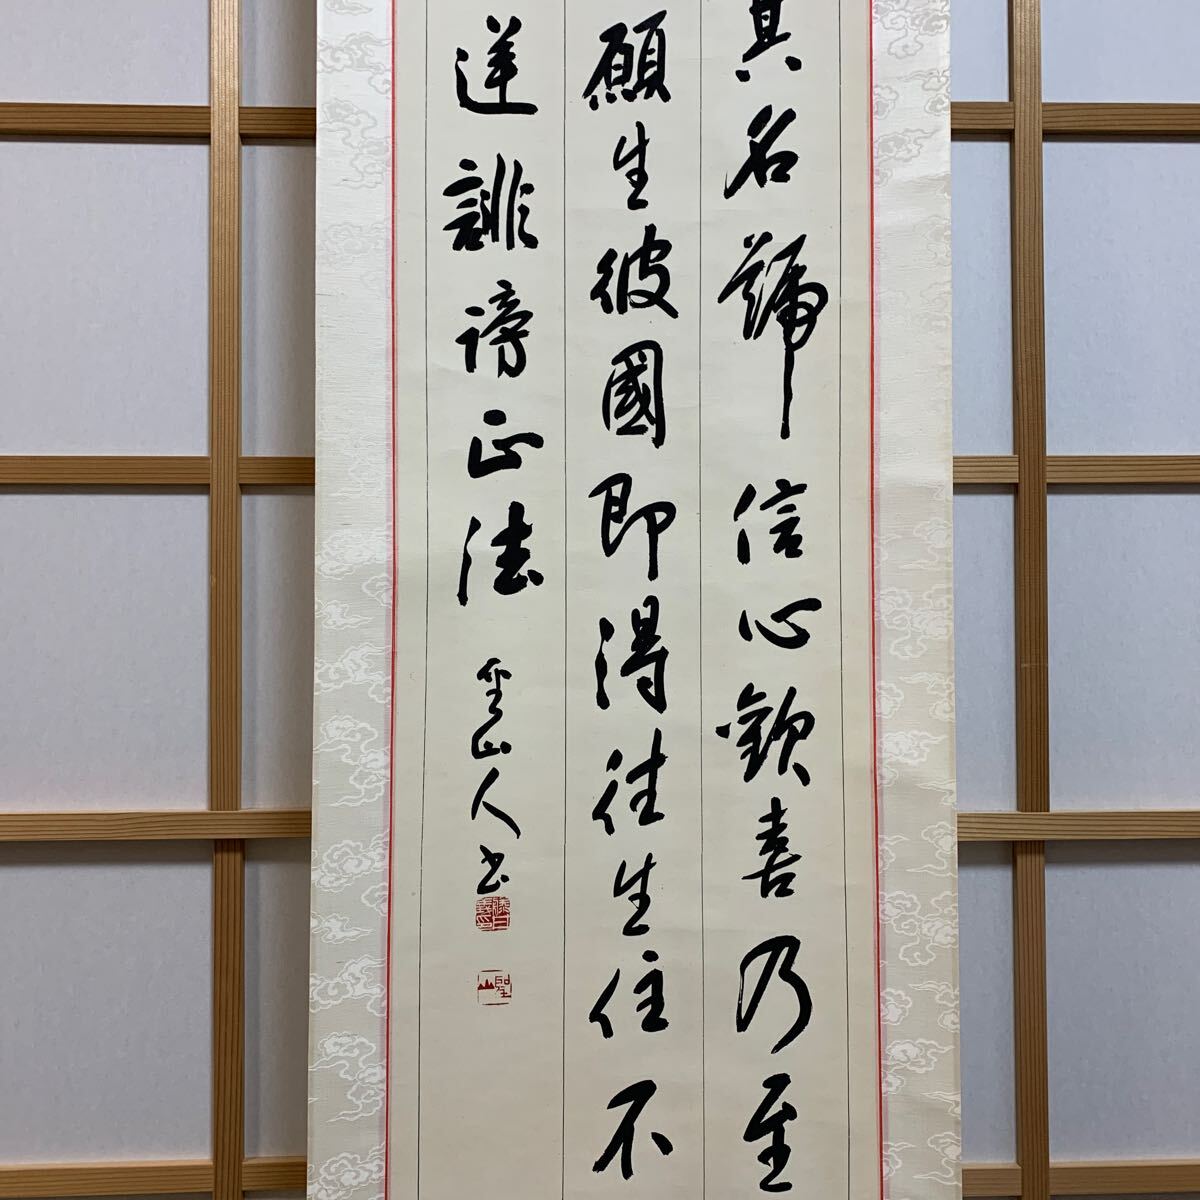 其名號信心歡喜乃至
願生彼國即得往生住不
逆誹謗正法
聖山人書
聖山